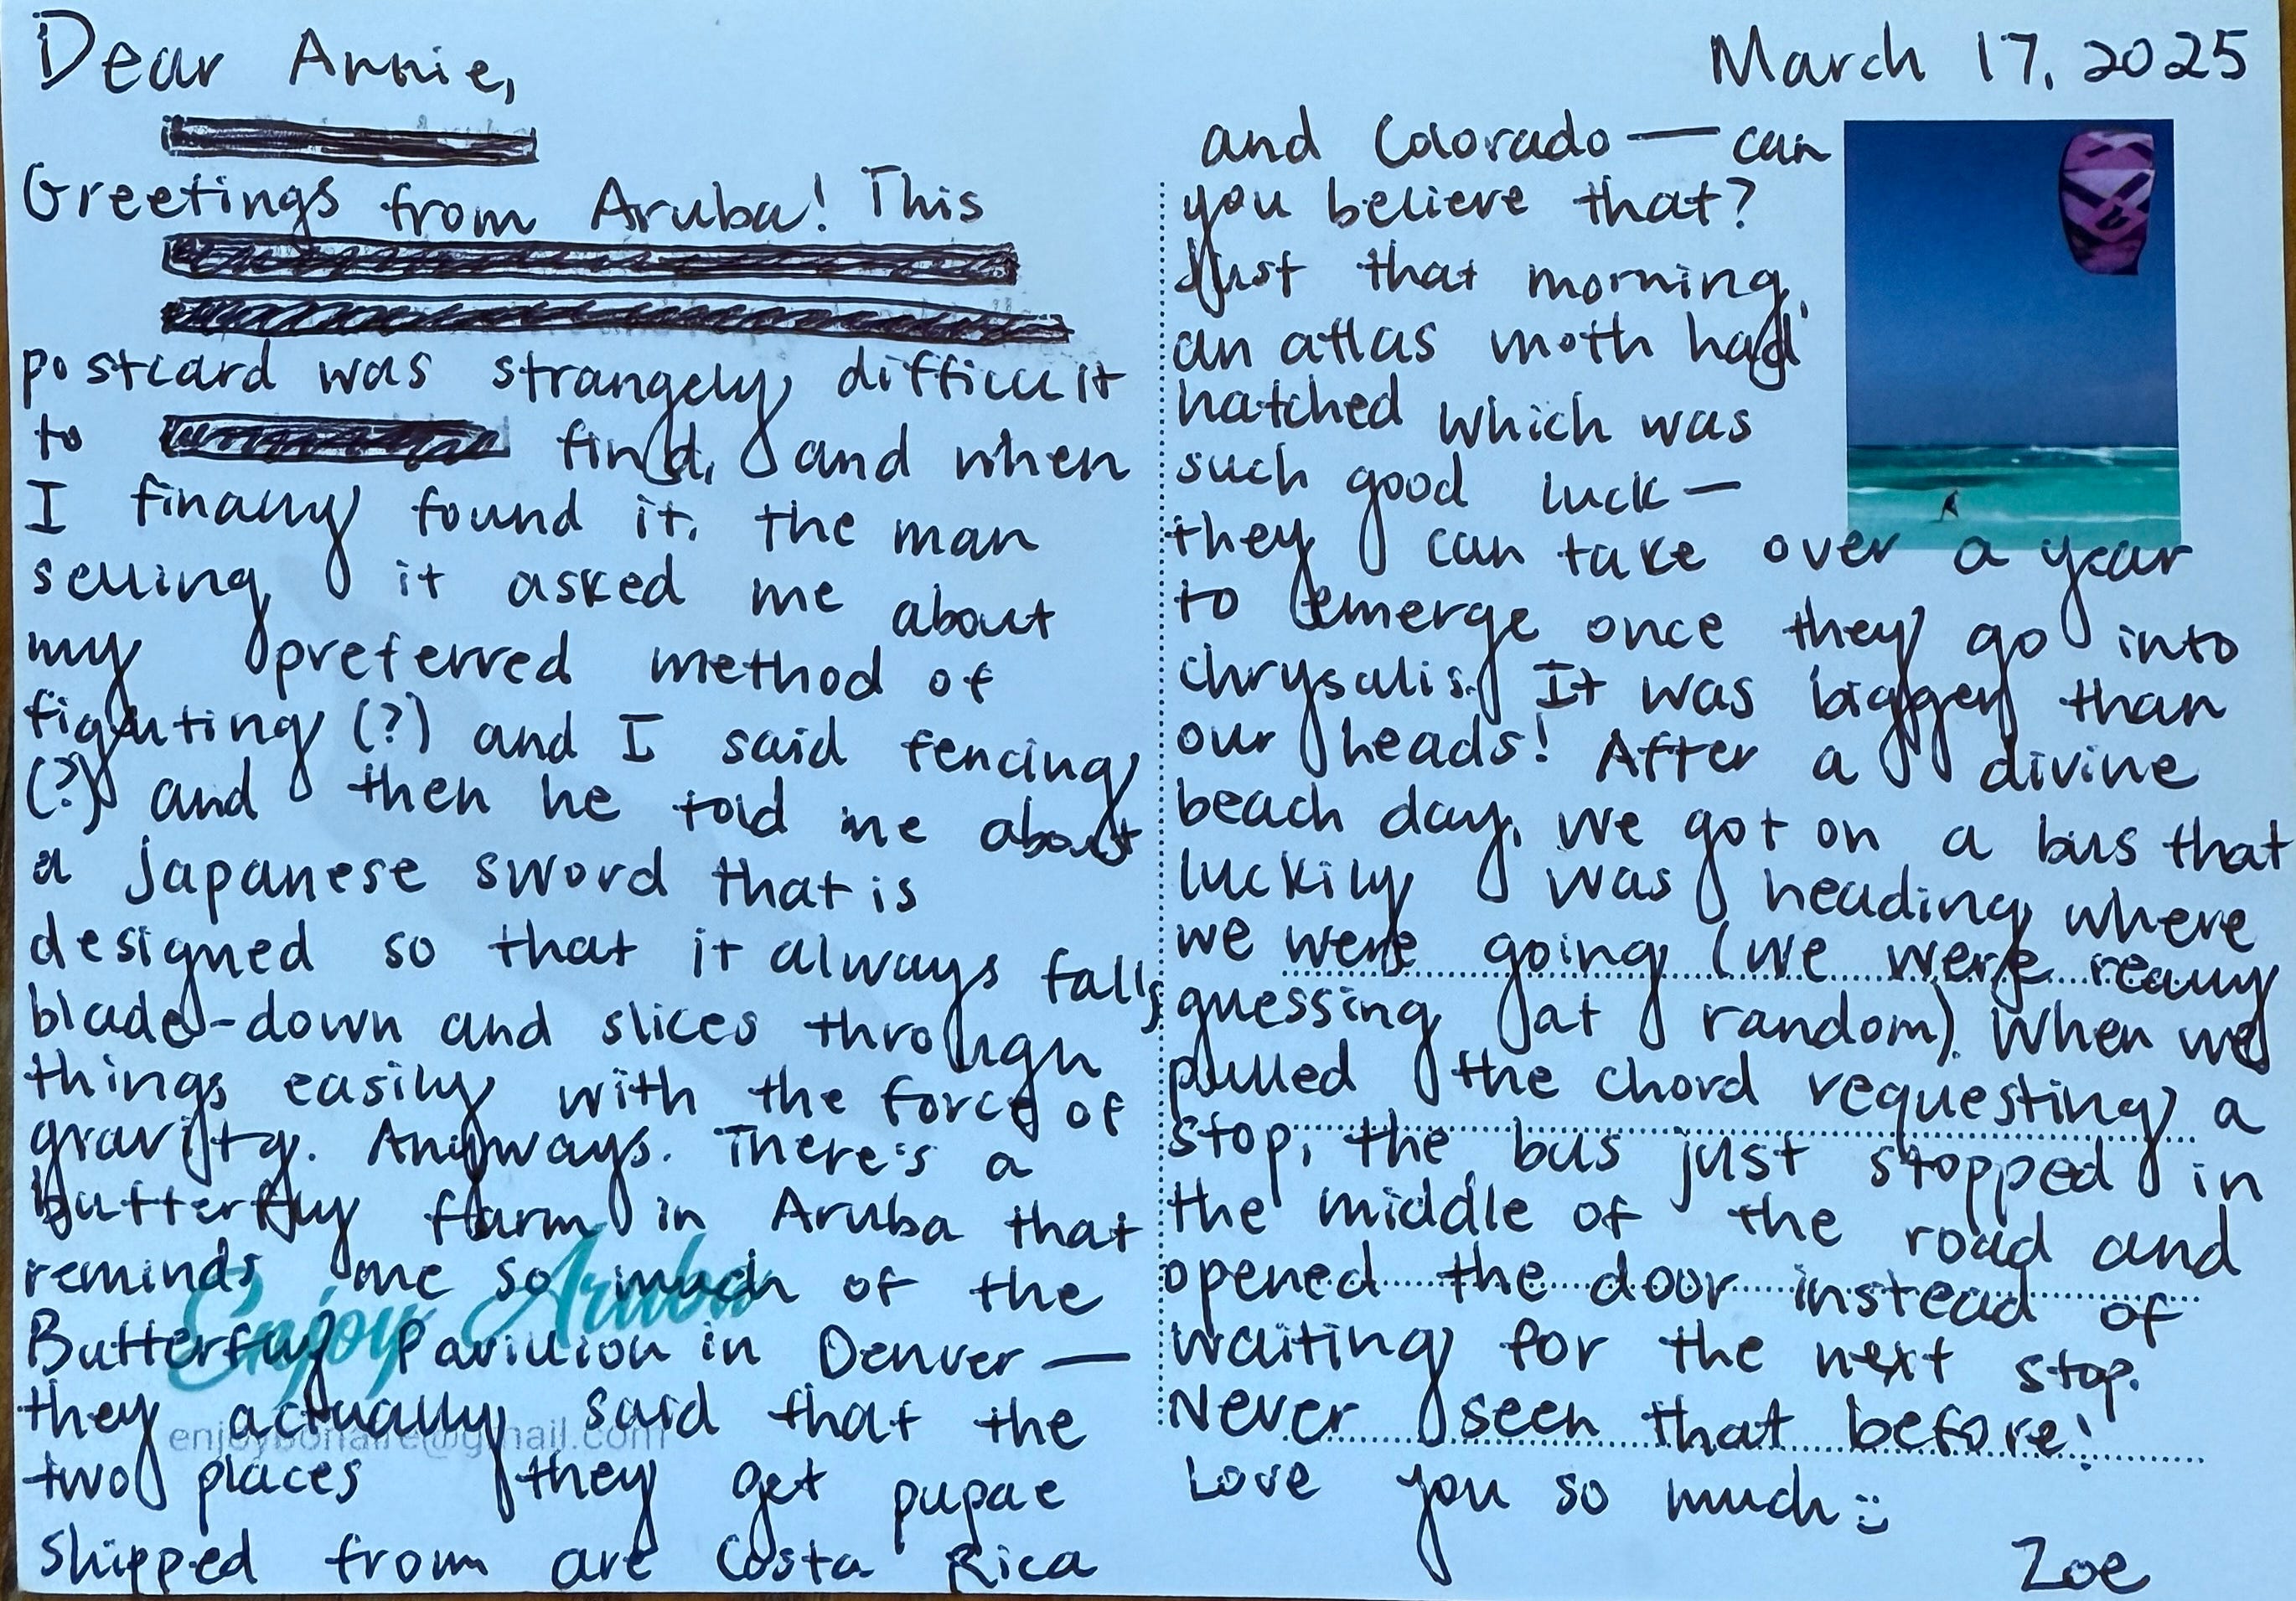 Dear Annie,
March 17, 2025
Greetings from Aruba! This
postcard was strangely difficult
to find, and when
I finally found it, the man
selling it asked me about
my preferred method of
fighting (?) and I said fencing
(?) and then he told me about
a Japanese sword that is
designed so that it always falls
blade-down and slices through
things easily with the force of
gravity. Anyways. There's a
butterfly farm in Aruba that
reminds me so much of the
Butterfly Pavillion in Denver —
they actually said that the
two places they get pupae
shipped from are Costa Rica
and Colorado — can
you believe that?
Just that morning,
an atlas moth had
hatched which was
such good luck —
they can take over a year
to emerge once they go into
chrysalis. It was bigger than
our heads! After a divine
beach day, we got on a bus that
luckily was heading where
we were going (we were really
guessing at random). When we
pulled the chord requesting a
stop, the bus just stopped in
the middle of the road and
opened the door instead of
waiting for the next stop.
Never seen that before!
Love you so much :)
Zoe
Enjoy Aruba
enjoybonaire@gmail.com